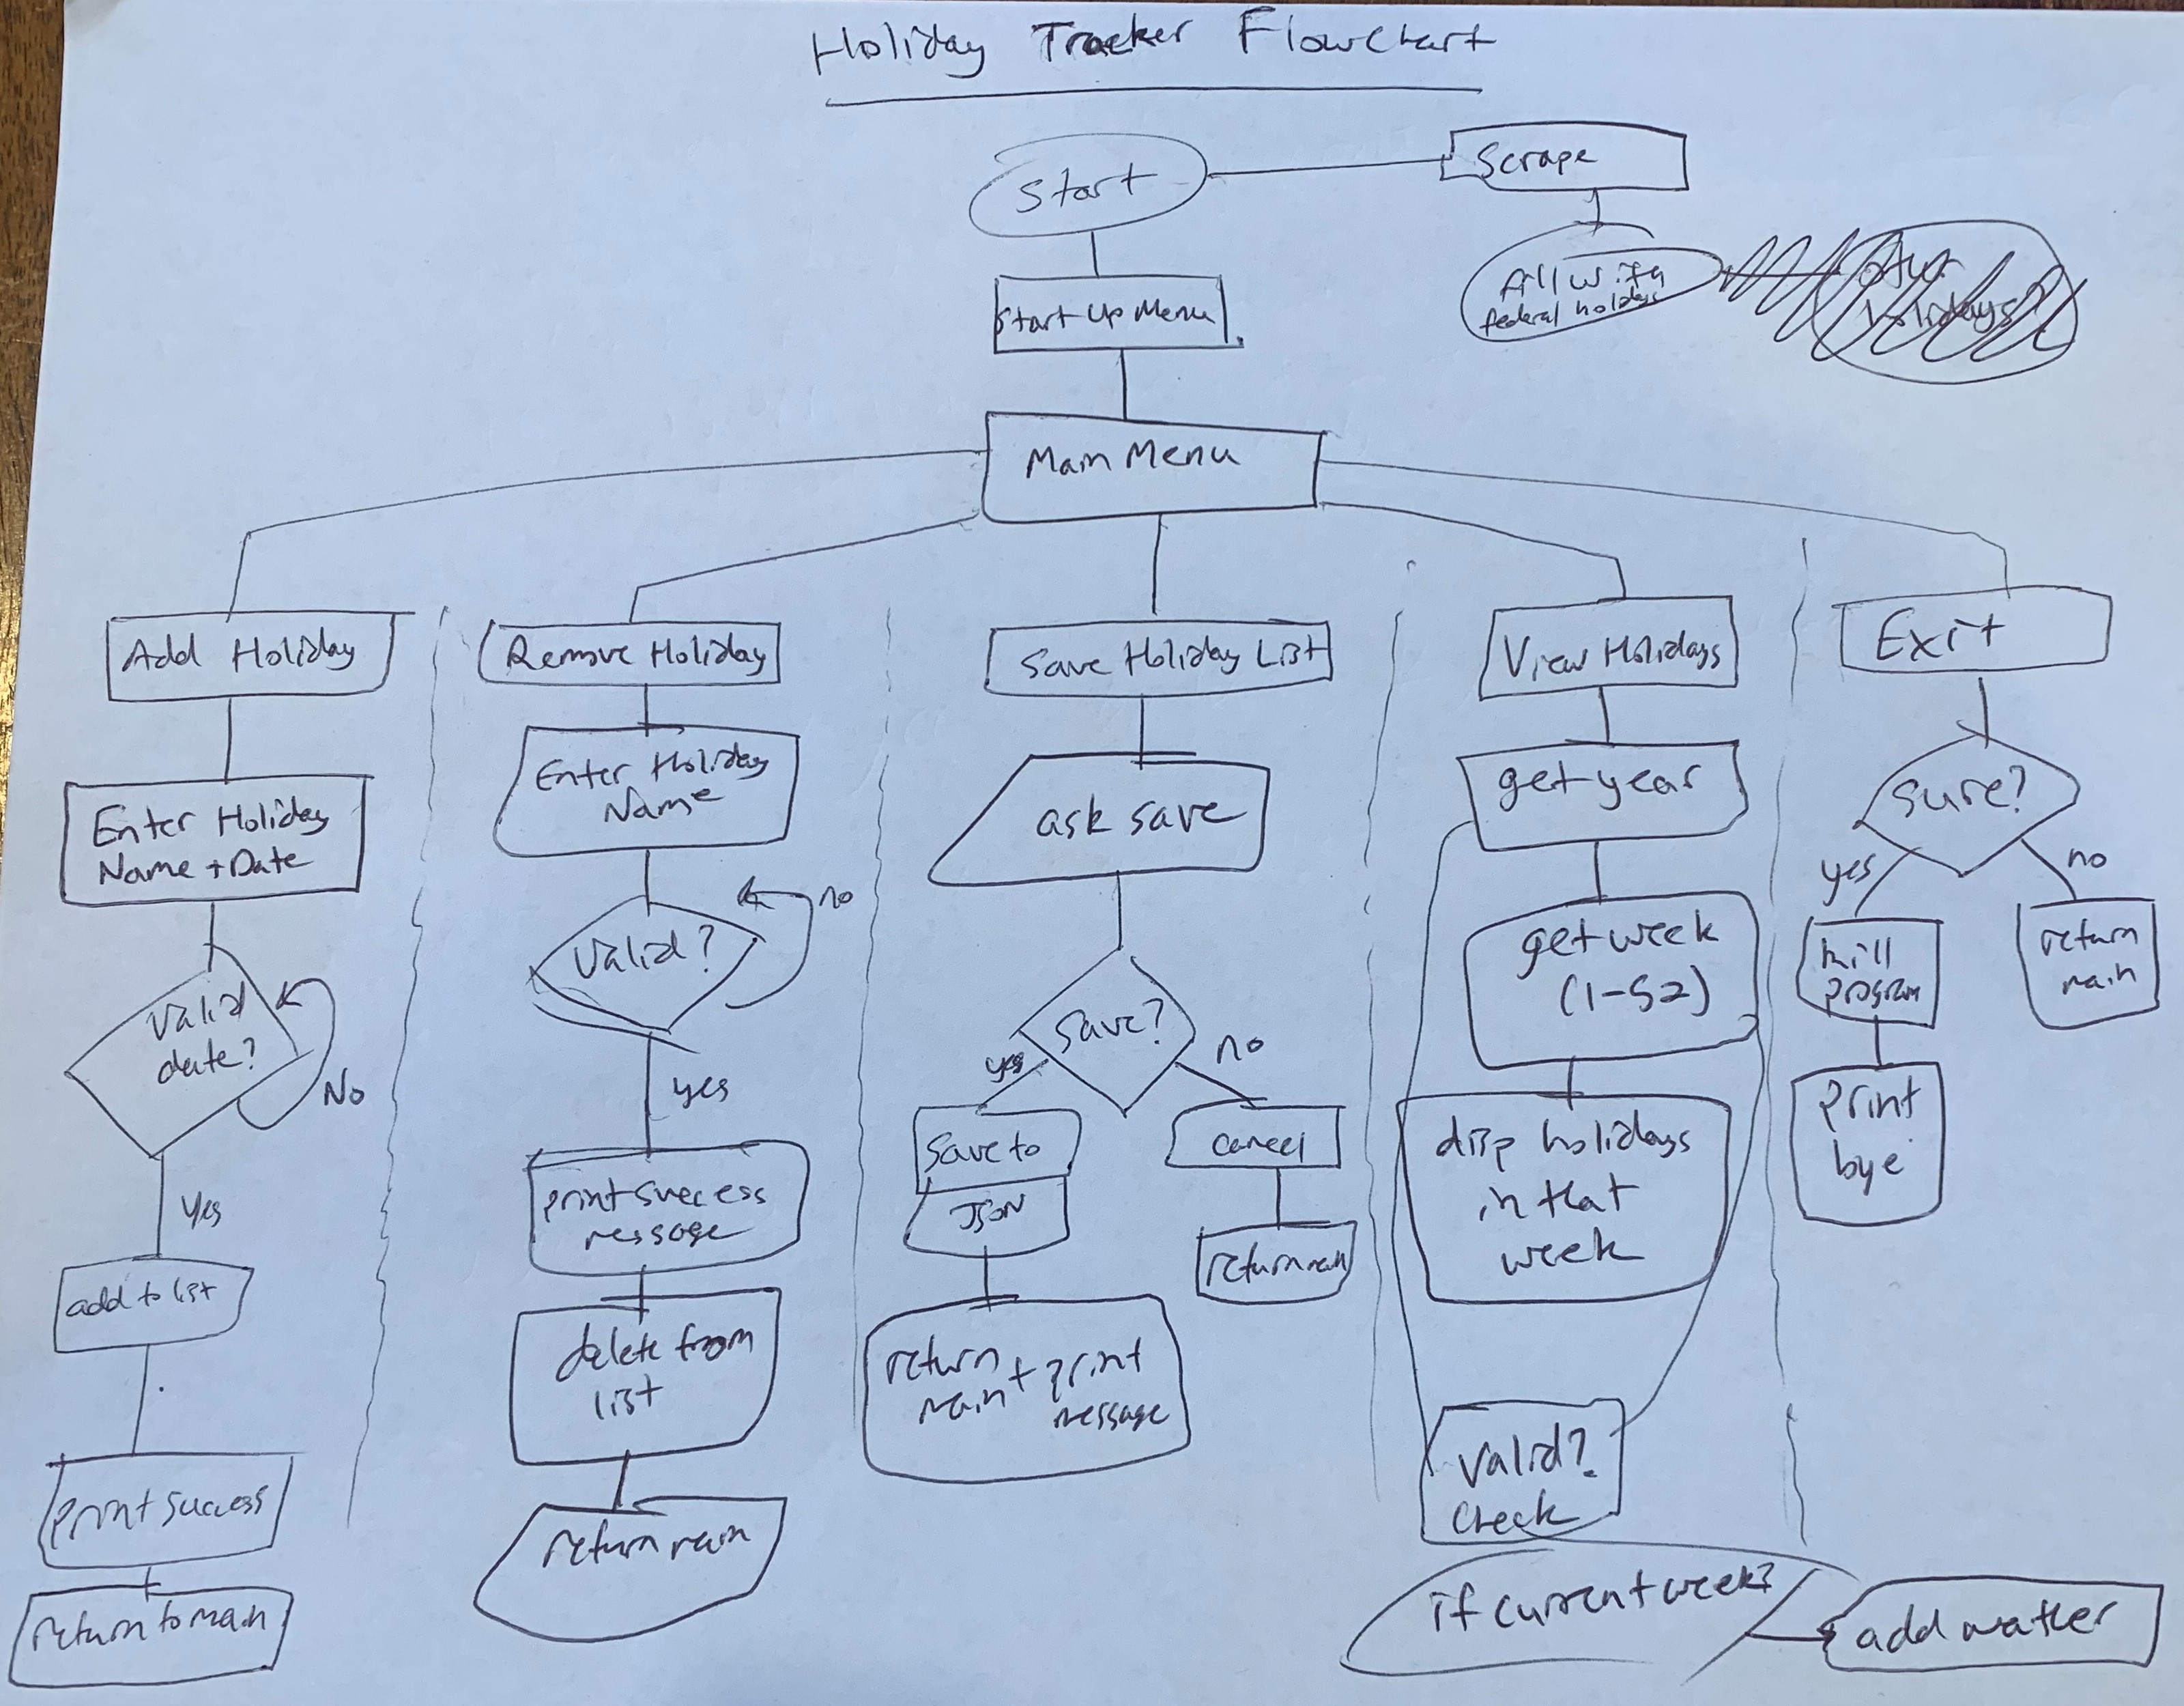 Holiday Tracker Flowchart
Start
Scrape
fill with
federal holidays
other
holidays?
Start Up Menu
Main Menu
Add Holiday
Enter Holiday
Name + Date
Valid
date?
No
Yes
add to list
print success
return to main
Remove Holiday
Enter Holiday
Name
Valid?
no
yes
print success
message
delete from
list
return main
Save Holiday List
ask save
Save?
yes
no
Save to
JSON
return
main + print
message
cancel
return main
View Holidays
get year
get week
(1-52)
disp holidays
in that
week
Valid?
Check
if current week?
add weather
Exit
Sure?
yes
no
kill
program
print
bye
return
main